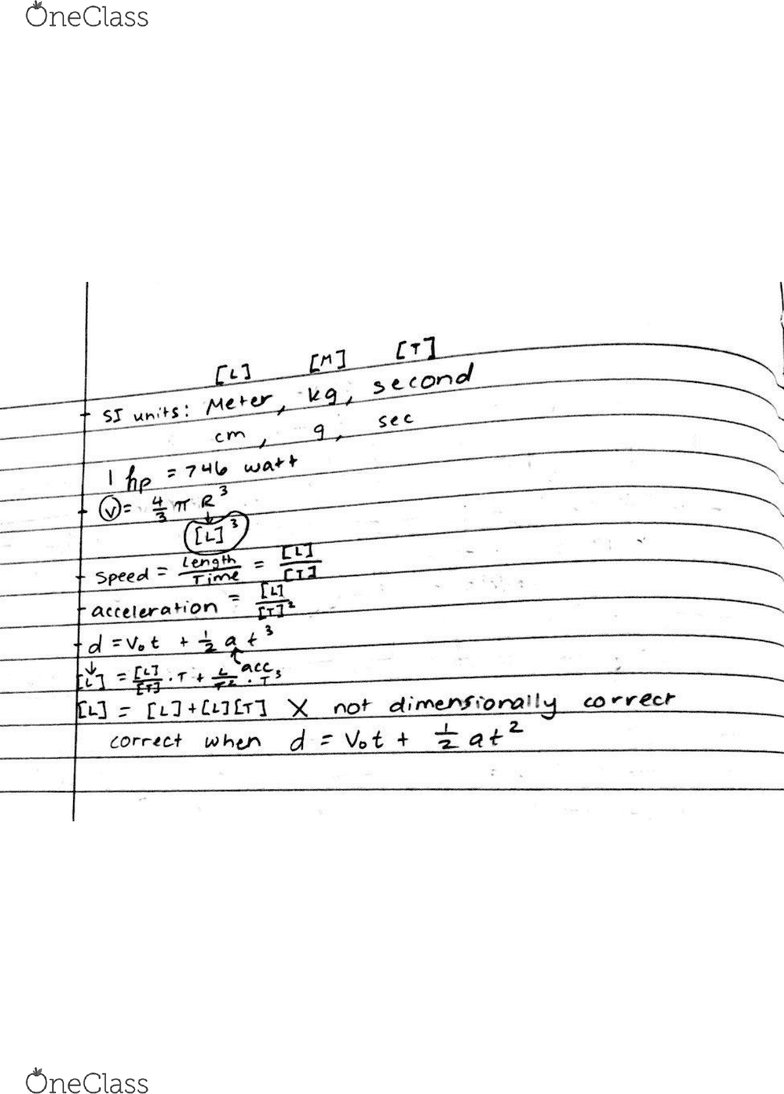 OneClass
[L] [M] [T]
- SI units: Meter, kg, second
cm, g, sec
1 hp = 746 watt
- V = 4/3 π R^3
[L]^3
- speed = Length/Time = [L]/[T]
- acceleration = [L]/[T]^2
- d = V₀t + 1/2 a t^3
acc
[L] = [L]/[T] · T + L/T^2 · T^3
[L] = [L] + [L][T] X not dimensionally correct
correct when d = V₀t + 1/2 at^2
OneClass